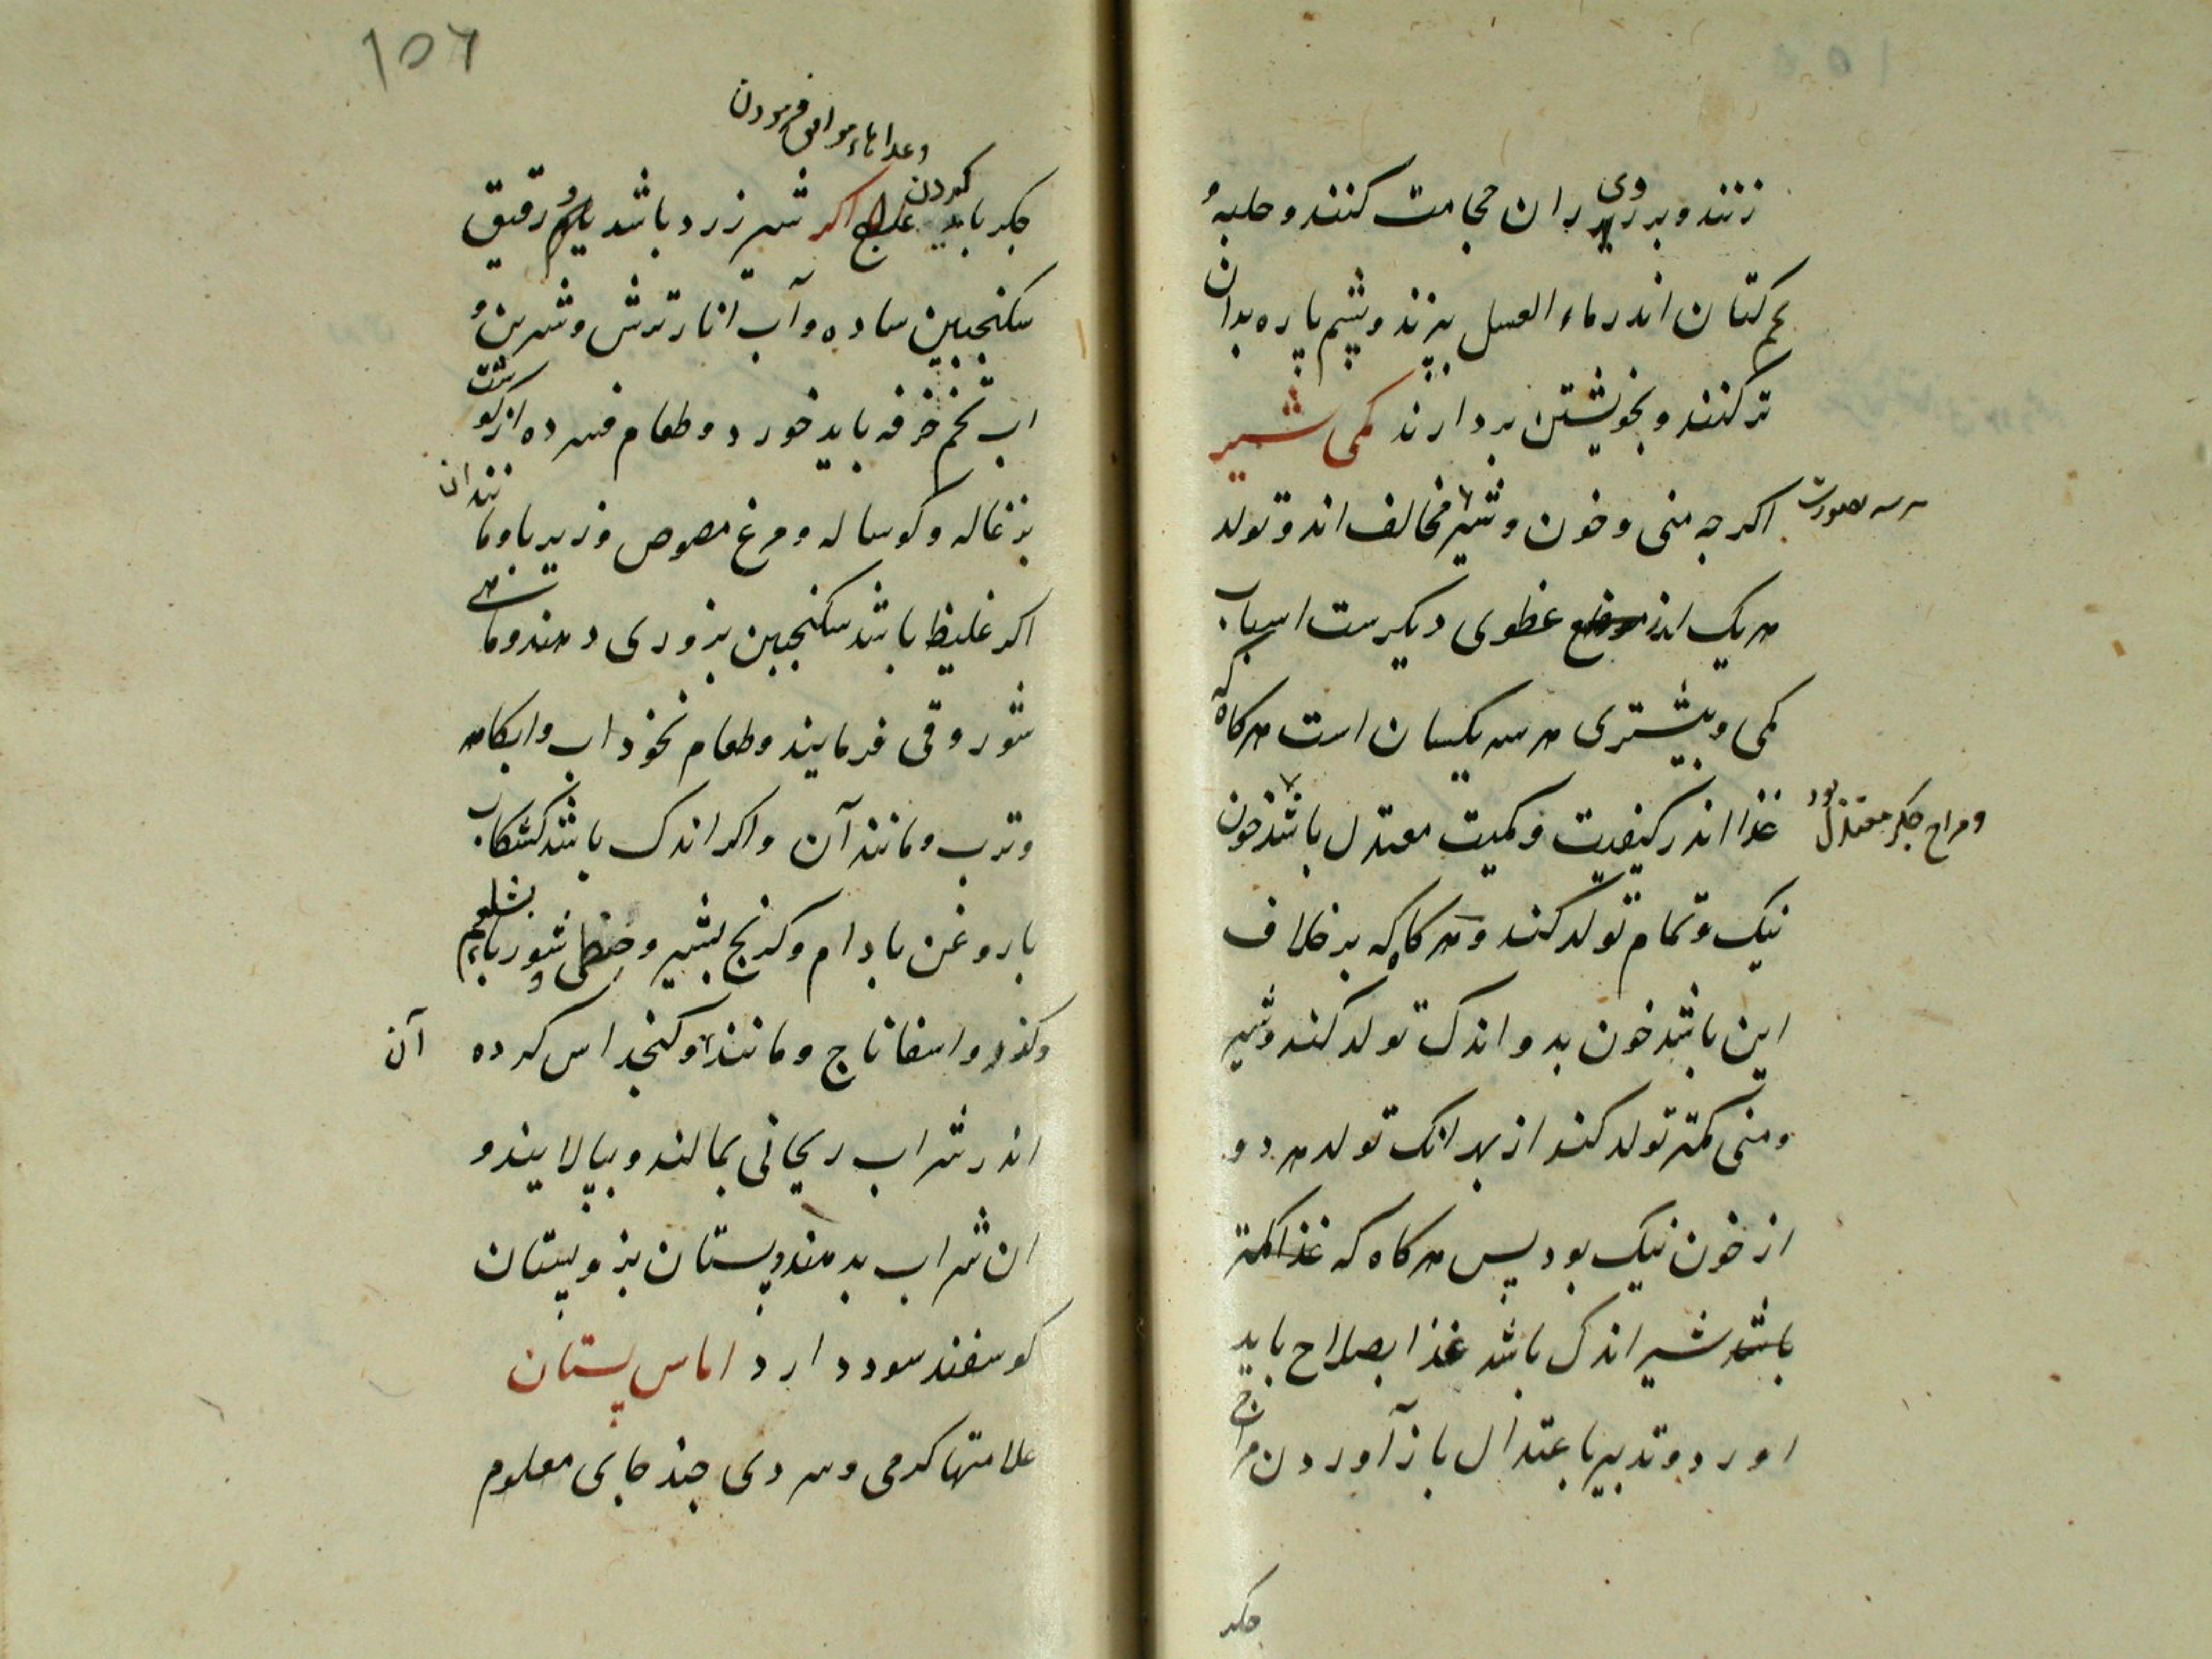 زنند و بر روی ران حجامت کنند و حلبه و
تخم کتان اندر ماء العسل بپزند و پشم پاره بدان
تر کنند و بخویشتن بردارند کمی شیر
اکرجه منی و خون و شیر مخالف اند و تولد
هر یک اندر موضع عظوی دیکرست اسباب
کمی و بیشتری هر سه یکسان است هرکاه که
غذا اندر کیفیت و کمیت معتدل باشد خون
ومزاج جکر معتدل بود
نیک و تمام تولد کند و هرکاه که بر خلاف
این باشد خون بد و اندک تولد کند و شیر
و منی کمتر تولد کند از بهر انک تولد هر دو
از خون نیک بود پس هرکاه که غذا کمتر
باشد شیر اندک باشد غذا بصلاح باید
اورد و تدبیر باعتدال باز آوردن مزاج
جکر
١٥٦
وغذاهاء موافق فرمودن
جکر باید کردن علاج اکر شیر زرد باشد یا رقیق
سکنجبین ساده و آب انار ترش و شیرین و
اب تخم خرفه باید خورد و طعام فسرده از کوشت
بزغاله و کوساله و مرغ مصوص و زیربا و مانند ان
اکر غلیظ باشد سکنجبین بزوری دهند و ماهی
شور و قی فرمایند و طعام نخوداب و ابکامه
و ترب و مانند آن و اکر اندک باشد کشکاب
با روغن بادام و کرنج بشیر و شورباء بشلغم
و کزر و اسفاناج و مانند آن و کنجد اس کرده
اندر شراب ریحانی بمالند و بپالایند و
ان شراب بدهند و پستان بز و پستان
کوسفند سود دارد اماس پستان
علامتها کرمی و سردی جند جای معلوم